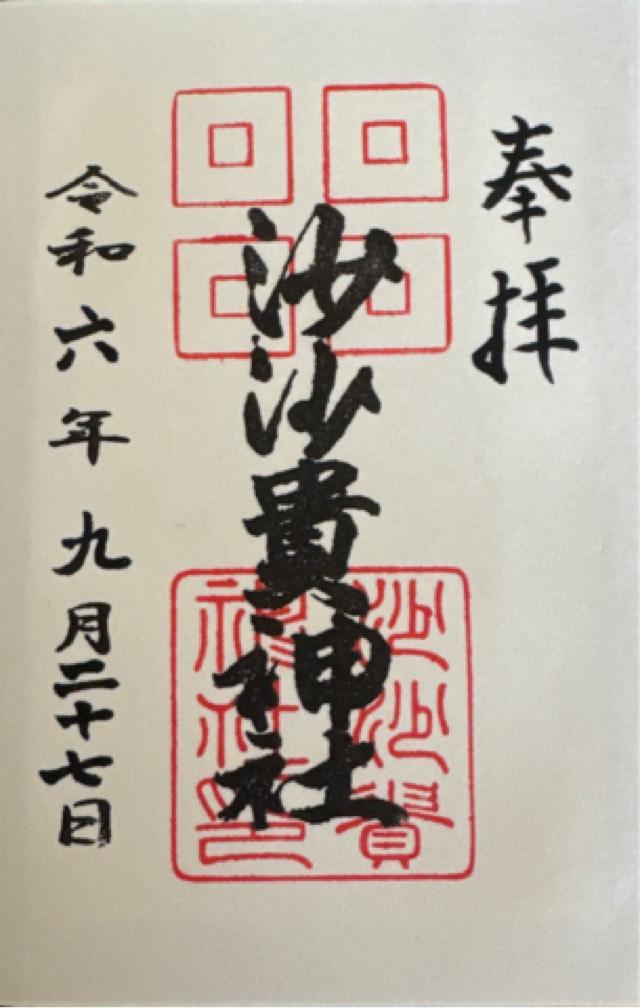 奉拝
沙沙貴神社
沙沙貴
神社印
令和六年九月二十七日